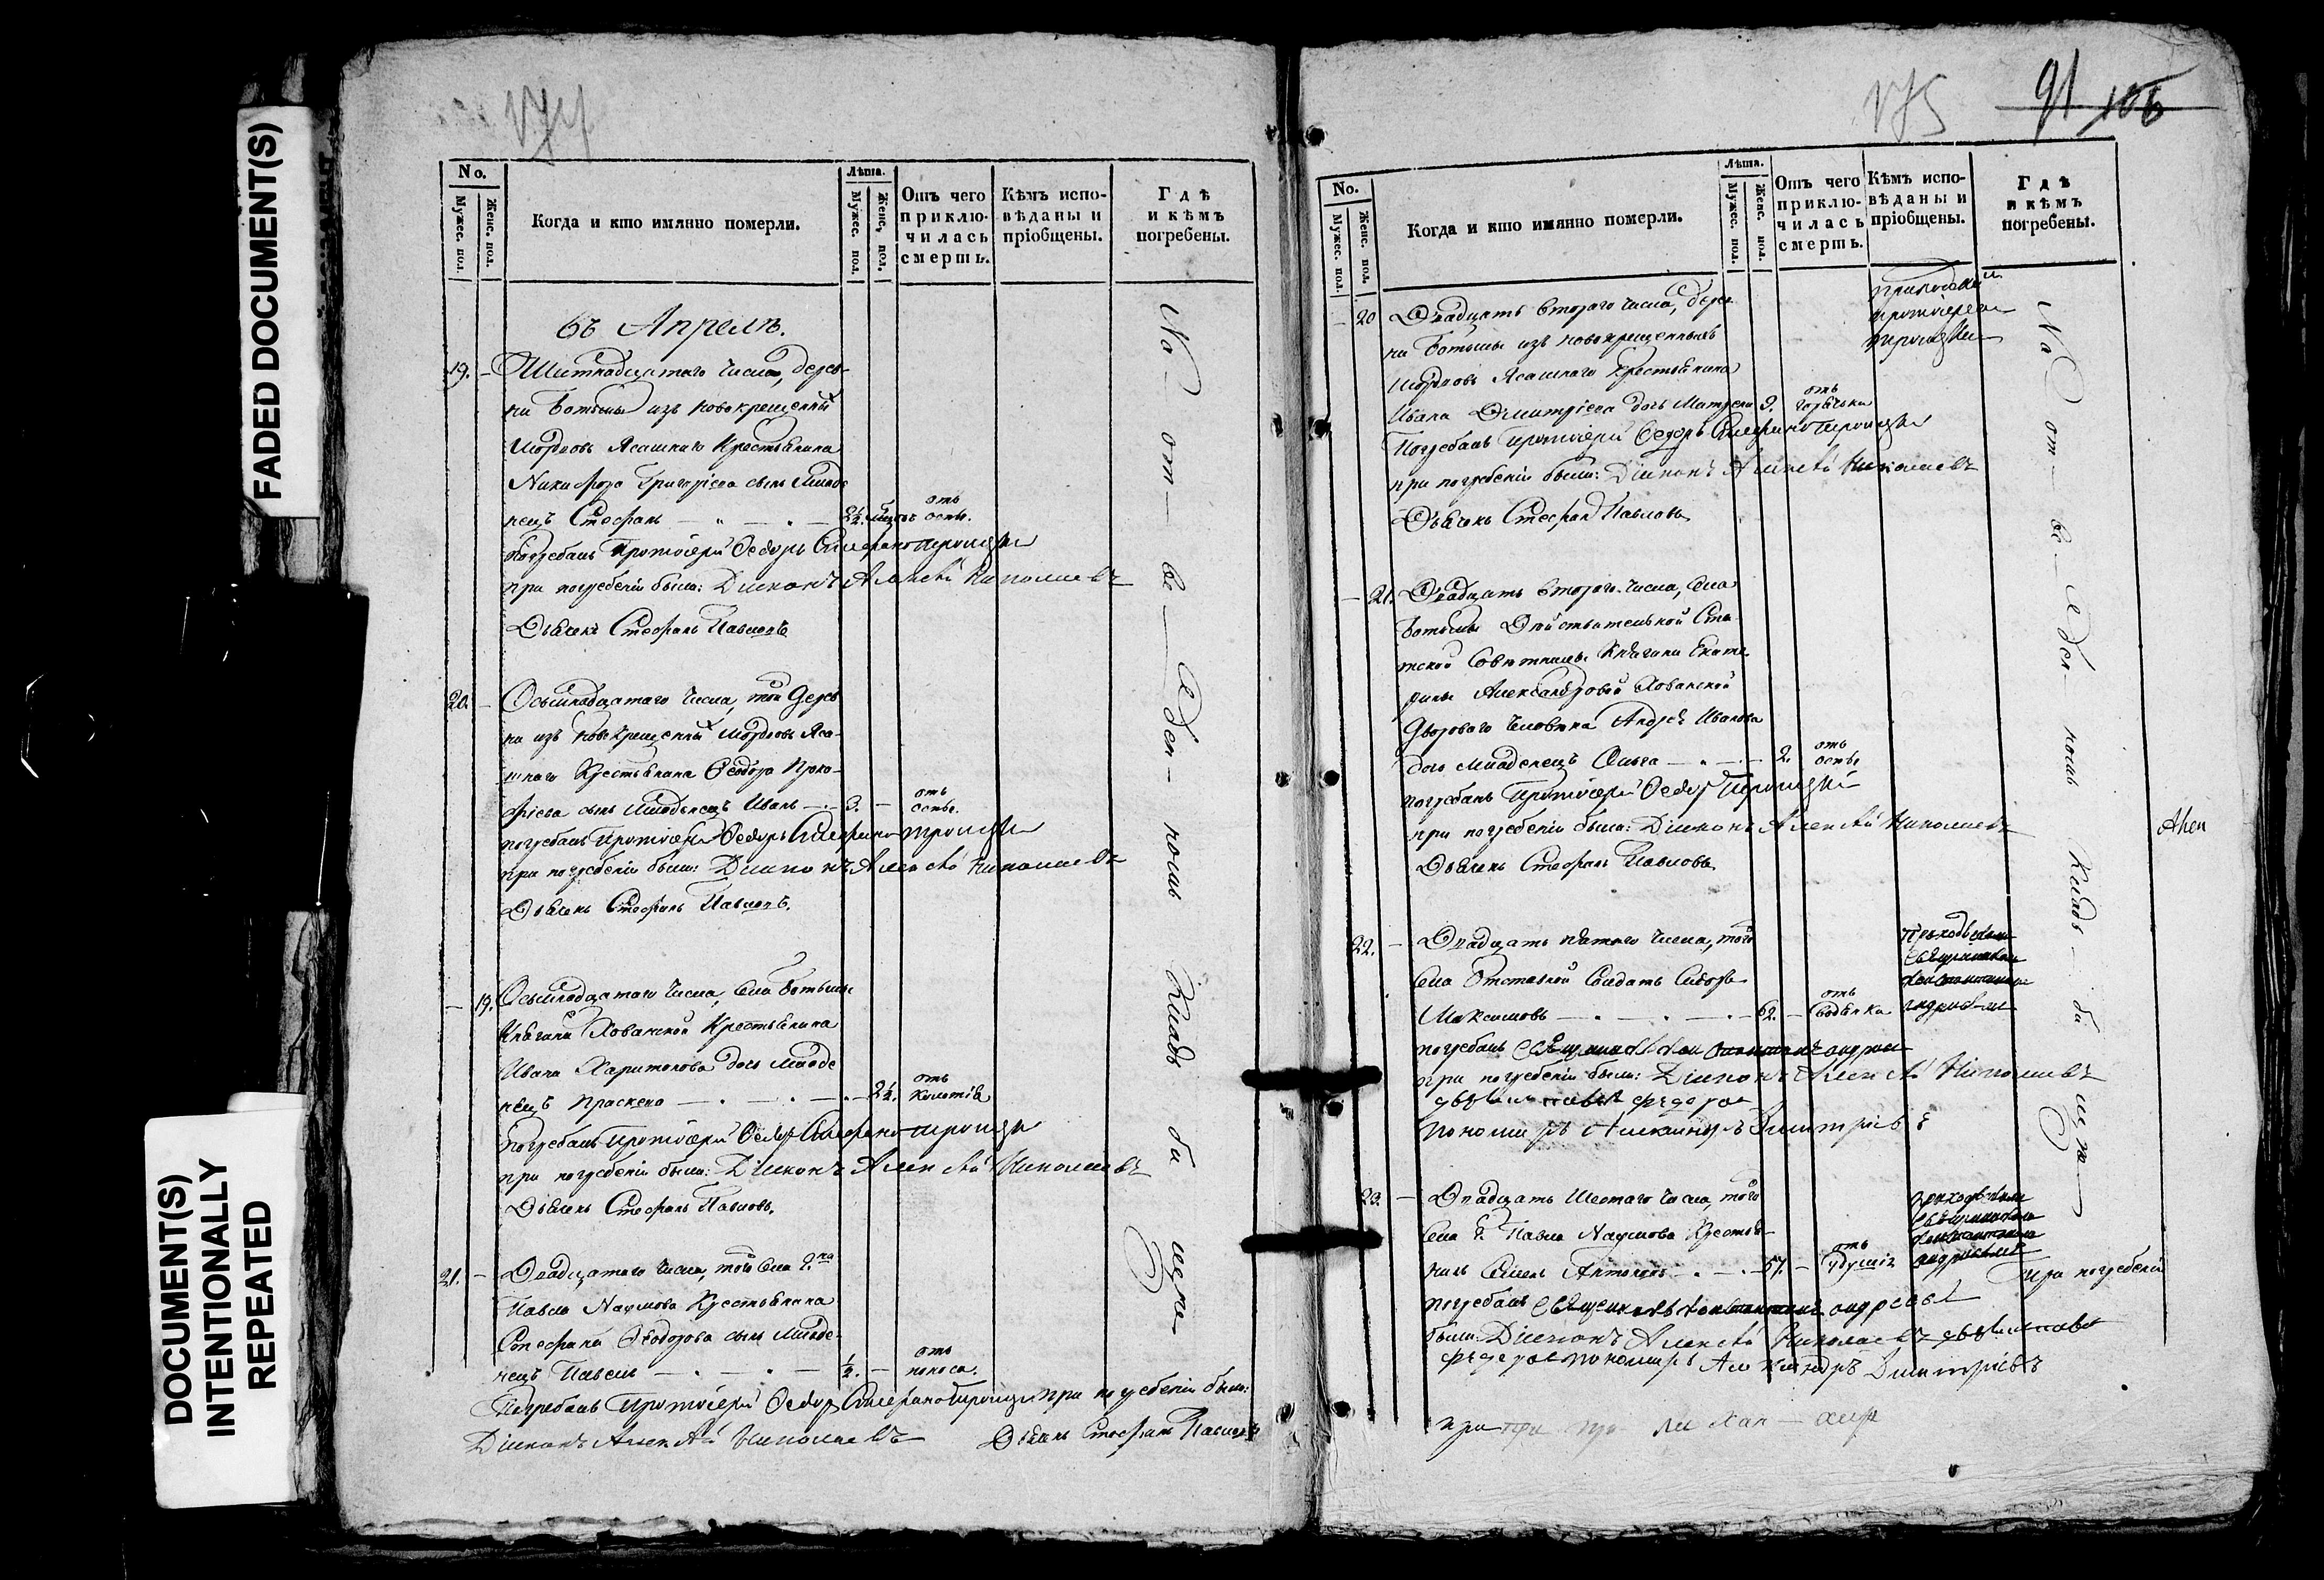 FADED DOCUMENT(S)
DOCUMENT(S)
INTENTIONALLY
REPEATED
No.
Мужес. пол.
Женс. пол.
Когда и кто имянно померли.
Лѣта.
Мужес. пол.
Женс. пол.
Отъ чего приключилась смерть.
Кѣмъ исповѣданы и пріобщены.
Гдѣ и кѣмъ погребены.
въ Апрелѣ.
19. – Шестнадцатаго числа, дерев
ни Ботьмы изъ новокрещенныхъ
Мордовъ Ясашнаго Крестьянина
Никифора Григорьева сынъ младе
нецъ Стефанъ – 2½ отъ оспы.
Погребалъ Протоіерей Ѳедоръ
при погребеніи были: Діаконъ Алексѣй Николаевъ
Дьячекъ Стефанъ Павловъ
20. – Осьмнадцатаго числа, той дерев
ни изъ новокрещенныхъ Мордовъ Яса-
шнаго Крестьянина Ѳеодора Проко-
фіева сынъ младенецъ Иванъ – 3. – отъ оспы.
погребалъ Протоіерей Ѳедоръ
при погребеніи были: Діаконъ Алексѣй Николаевъ
Дьячекъ Стефанъ Павловъ.
– 19. Осьмнадцатаго числа, села Ботьмы
Княгини Хованской Крестьянина
Ивана Харитонова дочь младе
нецъ – 2½. отъ
погребалъ Протоіерей Ѳедоръ
при погребеніи были: Діаконъ Алексѣй Николаевъ
Дьячекъ Стефанъ Павловъ.
21. – Двадцатаго числа, того села Г.на
Павла Наумова Крестьянина
Ѳеодорова сынъ младе-
нецъ Павелъ – ½. – отъ поноса.
Погребалъ Протоіерей Ѳедоръ при погребеніи были:
Діаконъ Алексѣй Николаевъ Дьячекъ Стефанъ Павловъ
На отведенномъ кладбищѣ
175
91
106
No.
Мужес. пол.
Женс. пол.
Когда и кто имянно померли.
Лѣта.
Мужес. пол.
Женс. пол.
Отъ чего приключилась смерть.
Кѣмъ исповѣданы и пріобщены.
Гдѣ и кѣмъ погребены.
– 20 Двадцать втораго числа, дерев
ни Ботьмы изъ новокрещенныхъ
Мордовъ Ясашнаго Крестьянина
Ивана Дмитріева дочь Матрена 9. отъ горячки
Погребалъ Протоіерей Ѳедоръ
при погребеніи были: Діаконъ Алексѣй Николаевъ
Дьячекъ Стефанъ Павловъ
– 21. Двадцать втораго числа, села
Ботьмы Дѣйствительной Ста
тской Совѣтницы Княгини Екате
рины Александровой Хованской
двороваго человѣка Андрея Иванова
дочь младенецъ Ольга – 2. отъ оспы
погребалъ Протоіерей Ѳедоръ
при погребеніи были: Діаконъ Алексѣй Николаевъ
Дьячекъ Стефанъ Павловъ
22. – Двадцать пятаго числа, того
села Отставной Солдатъ Сидоръ
Максимовъ – 62. – отъ
погребалъ Священникъ
при погребеніи были: Діаконъ Алексѣй Николаевъ
Пономарь Александръ Дмитріевъ
23. – Двадцать шестаго числа, того
села Г. Павла Наумова Крестья-
нинъ Семенъ Антоновъ – 57. – отъ удушія
погребалъ Священникъ при погребеніи
были: Діаконъ Алексѣй Николаевъ
пономарь Александръ Дмитріевъ
На отведенномъ кладбищѣ